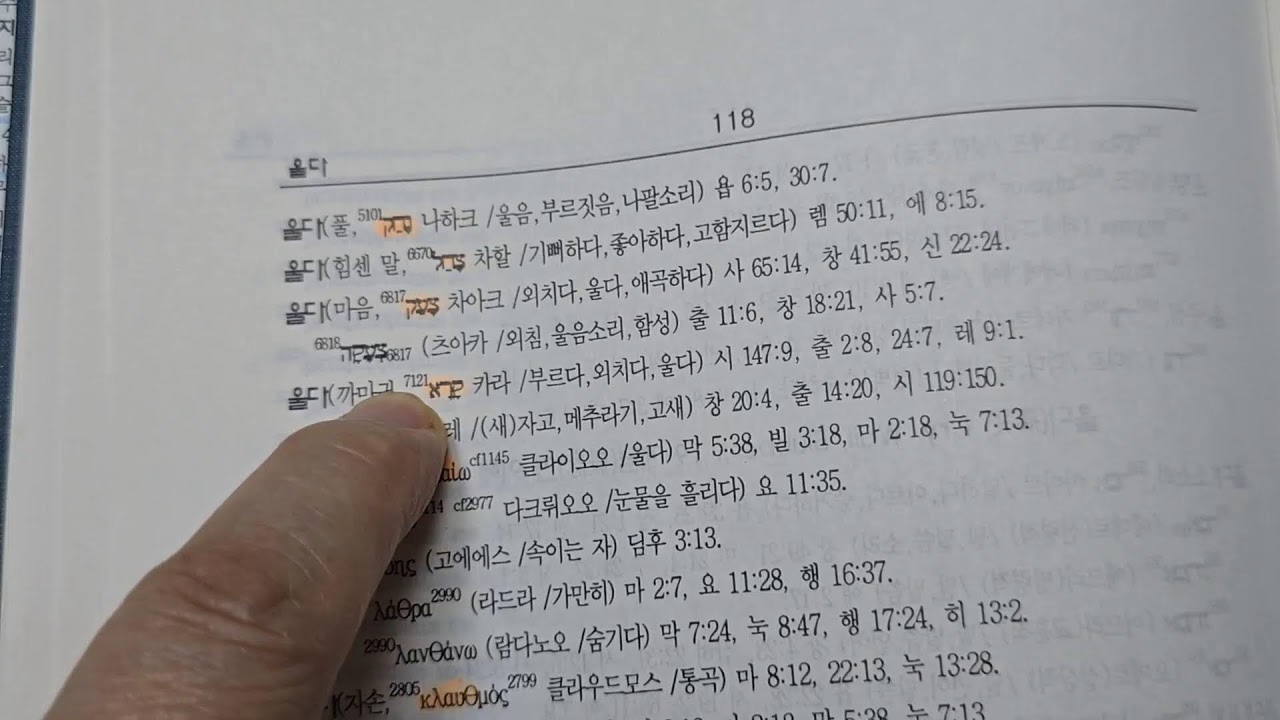 118
울다
울다(풀, 5101נהק 나하크 /울음,부르짖음,나팔소리) 욥 6:5, 30:7.
울다(힘센 말, 6670צהל 차할 /기뻐하다,좋아하다,고함지르다) 렘 50:11, 에 8:15.
울다(마음, 6817צעק 차아크 /외치다,울다,애곡하다) 사 65:14, 창 41:55, 신 22:24.
6818צעקה6817 (츠아카 /외침,울음소리,함성) 출 11:6, 창 18:21, 사 5:7.
울다(까마귀, 7121קרא 카라 /부르다,외치다,울다) 시 147:9, 출 2:8, 24:7, 레 9:1.
레 /(새)자고,메추라기,고새) 창 20:4, 출 14:20, 시 119:150.
αίω cf1145 클라이오오 /울다) 막 5:38, 빌 3:18, 마 2:18, 눅 7:13.
cf2977 다크뤼오오 /눈물을 흘리다) 요 11:35.
ης (고에에스 /속이는 자) 딤후 3:13.
λάθρα2990 (라드라 /가만히) 마 2:7, 요 11:28, 행 16:37.
2990λανθάνω (람다노오 /숨기다) 막 7:24, 눅 8:47, 행 17:24, 히 13:2.
(자손, 2805κλαυθμός2799 클라우드모스 /통곡) 마 8:12, 22:13, 눅 13:28.